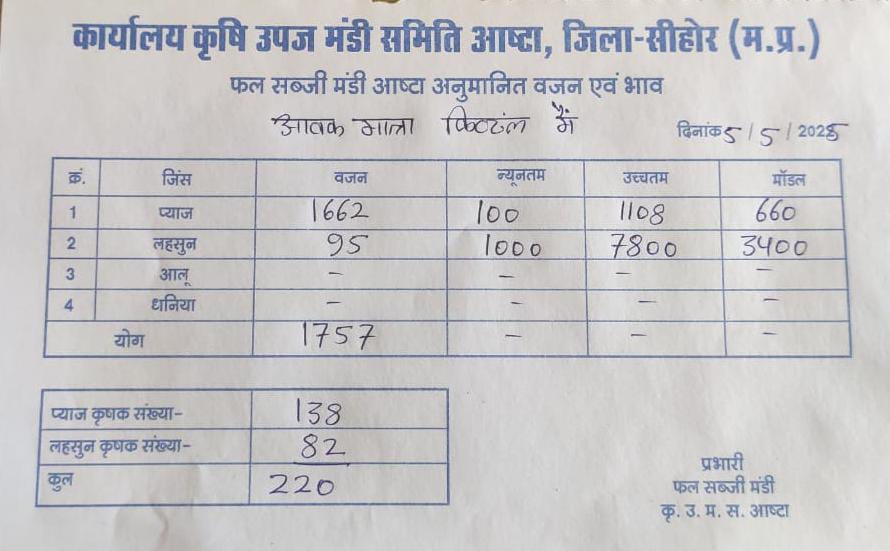 कार्यालय कृषि उपज मंडी समिति आष्टा, जिला-सीहोर (म.प्र.)
फल सब्जी मंडी आष्टा अनुमानित वजन एवं भाव
आवक मात्रा क्विटंल में दिनांक 5/5/2025
क्रं. जिंस वजन न्यूनतम उच्चतम मॉडल
1 प्याज 1662 100 1108 660
2 लहसुन 95 1000 7800 3400
3 आलू - - - -
4 धनिया - - - -
योग 1757 - - -
प्याज कृषक संख्या- 138
लहसुन कृषक संख्या- 82
कुल 220
प्रभारी
फल सब्जी मंडी
कृ. उ. म. स. आष्टा